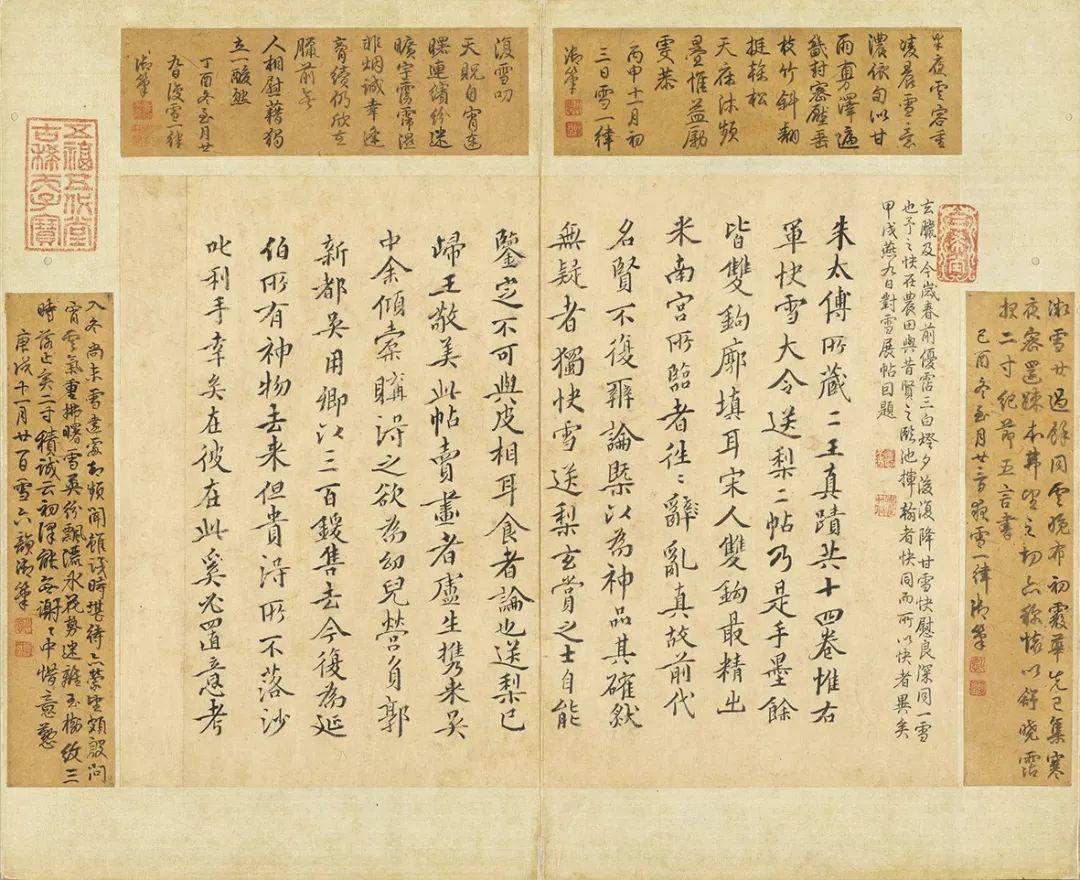 朱太傅所藏二王真蹟共十四卷惟右
軍快雪大令送梨二帖乃是手墨餘
皆雙鉤廓填耳宋人雙鉤最精出
米南宮所臨者往々辭亂真故前代
名賢不復辨論槩以為神品其確然
無疑者獨快雪送梨玄賞之士自能
鑒定不可與皮相耳食者論也送梨已
歸王敬美此帖賣畫者盧生攜來吳
中余傾橐購得之欲為幼兒營負郭
新都吳用卿以三百鍰售去今復為延
伯所有神物去来但貴得所不落沙
叱利手幸矣在彼在此奚必置意考
玄臘及今歲春前優霑三白燈夕後復降甘雪快慰良深同一雪
也予之快在農田與昔賢之臨池揮翰者快同而所以快者異矣
甲戌燕九日對雪展帖因題
半夜雲容重
凌晨雪意
濃依旬以甘
雨夤澤遍
畿封密壓垂
枝竹斜翻
挺榦松
天庥沐頻
疊惟益勵
雯恭
丙申十一月初
三日雪一律
御筆
復雪叨
天貺自宵達
曙連繽紛迷
曠宇靄霈濕
非烟誠幸逢
膏續仍欣在
臘前無
人相慰藉獨
立一酸然
丁酉冬至月廿
九日復雪一律
御筆
湘雪廿過餘同雲晚布初霰華先已集寒
夜密還疎本弗望之切亦稱懷以舒曉霑
報二寸紀節五言書
己酉冬至月廿二日夜雪一律御筆
入冬尚未雪遠霑却頻聞雖淺時堪待亦蒙望頗殷向
宵雲氣重拂曙雪英紛飄灑氷花勢迷離玉樹紋三
時落止亥二寸積誠云初澤能無謝々中惜意慇
庚戌十一月廿一日雪六韻御筆
五福五代堂
古稀天子寶